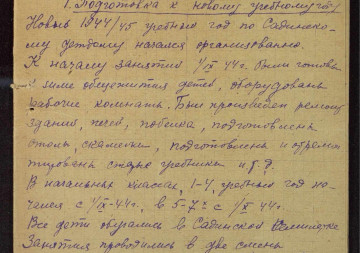 1. Подготовка к новому учебному году
Новый 1944/45 учебный год по Садинско-
му детдому начался организованно.
К началу занятий 1/IX 44 г. были готовы
к зиме общежития детей, оборудованы
рабочие комнаты. Был произведен ремонт
зданий, печей, побелка, подготовлены
столы, скамейки, подготовлены и отремон
тированы старые учебники и т.д.
В начальных классах, 1-4, учебный год на-
чался с 1/IX-44 г., в 5-7 х с 1/X 44 г.
Все дети обучались в Садинской семилетке
Занятия проводились в две смены